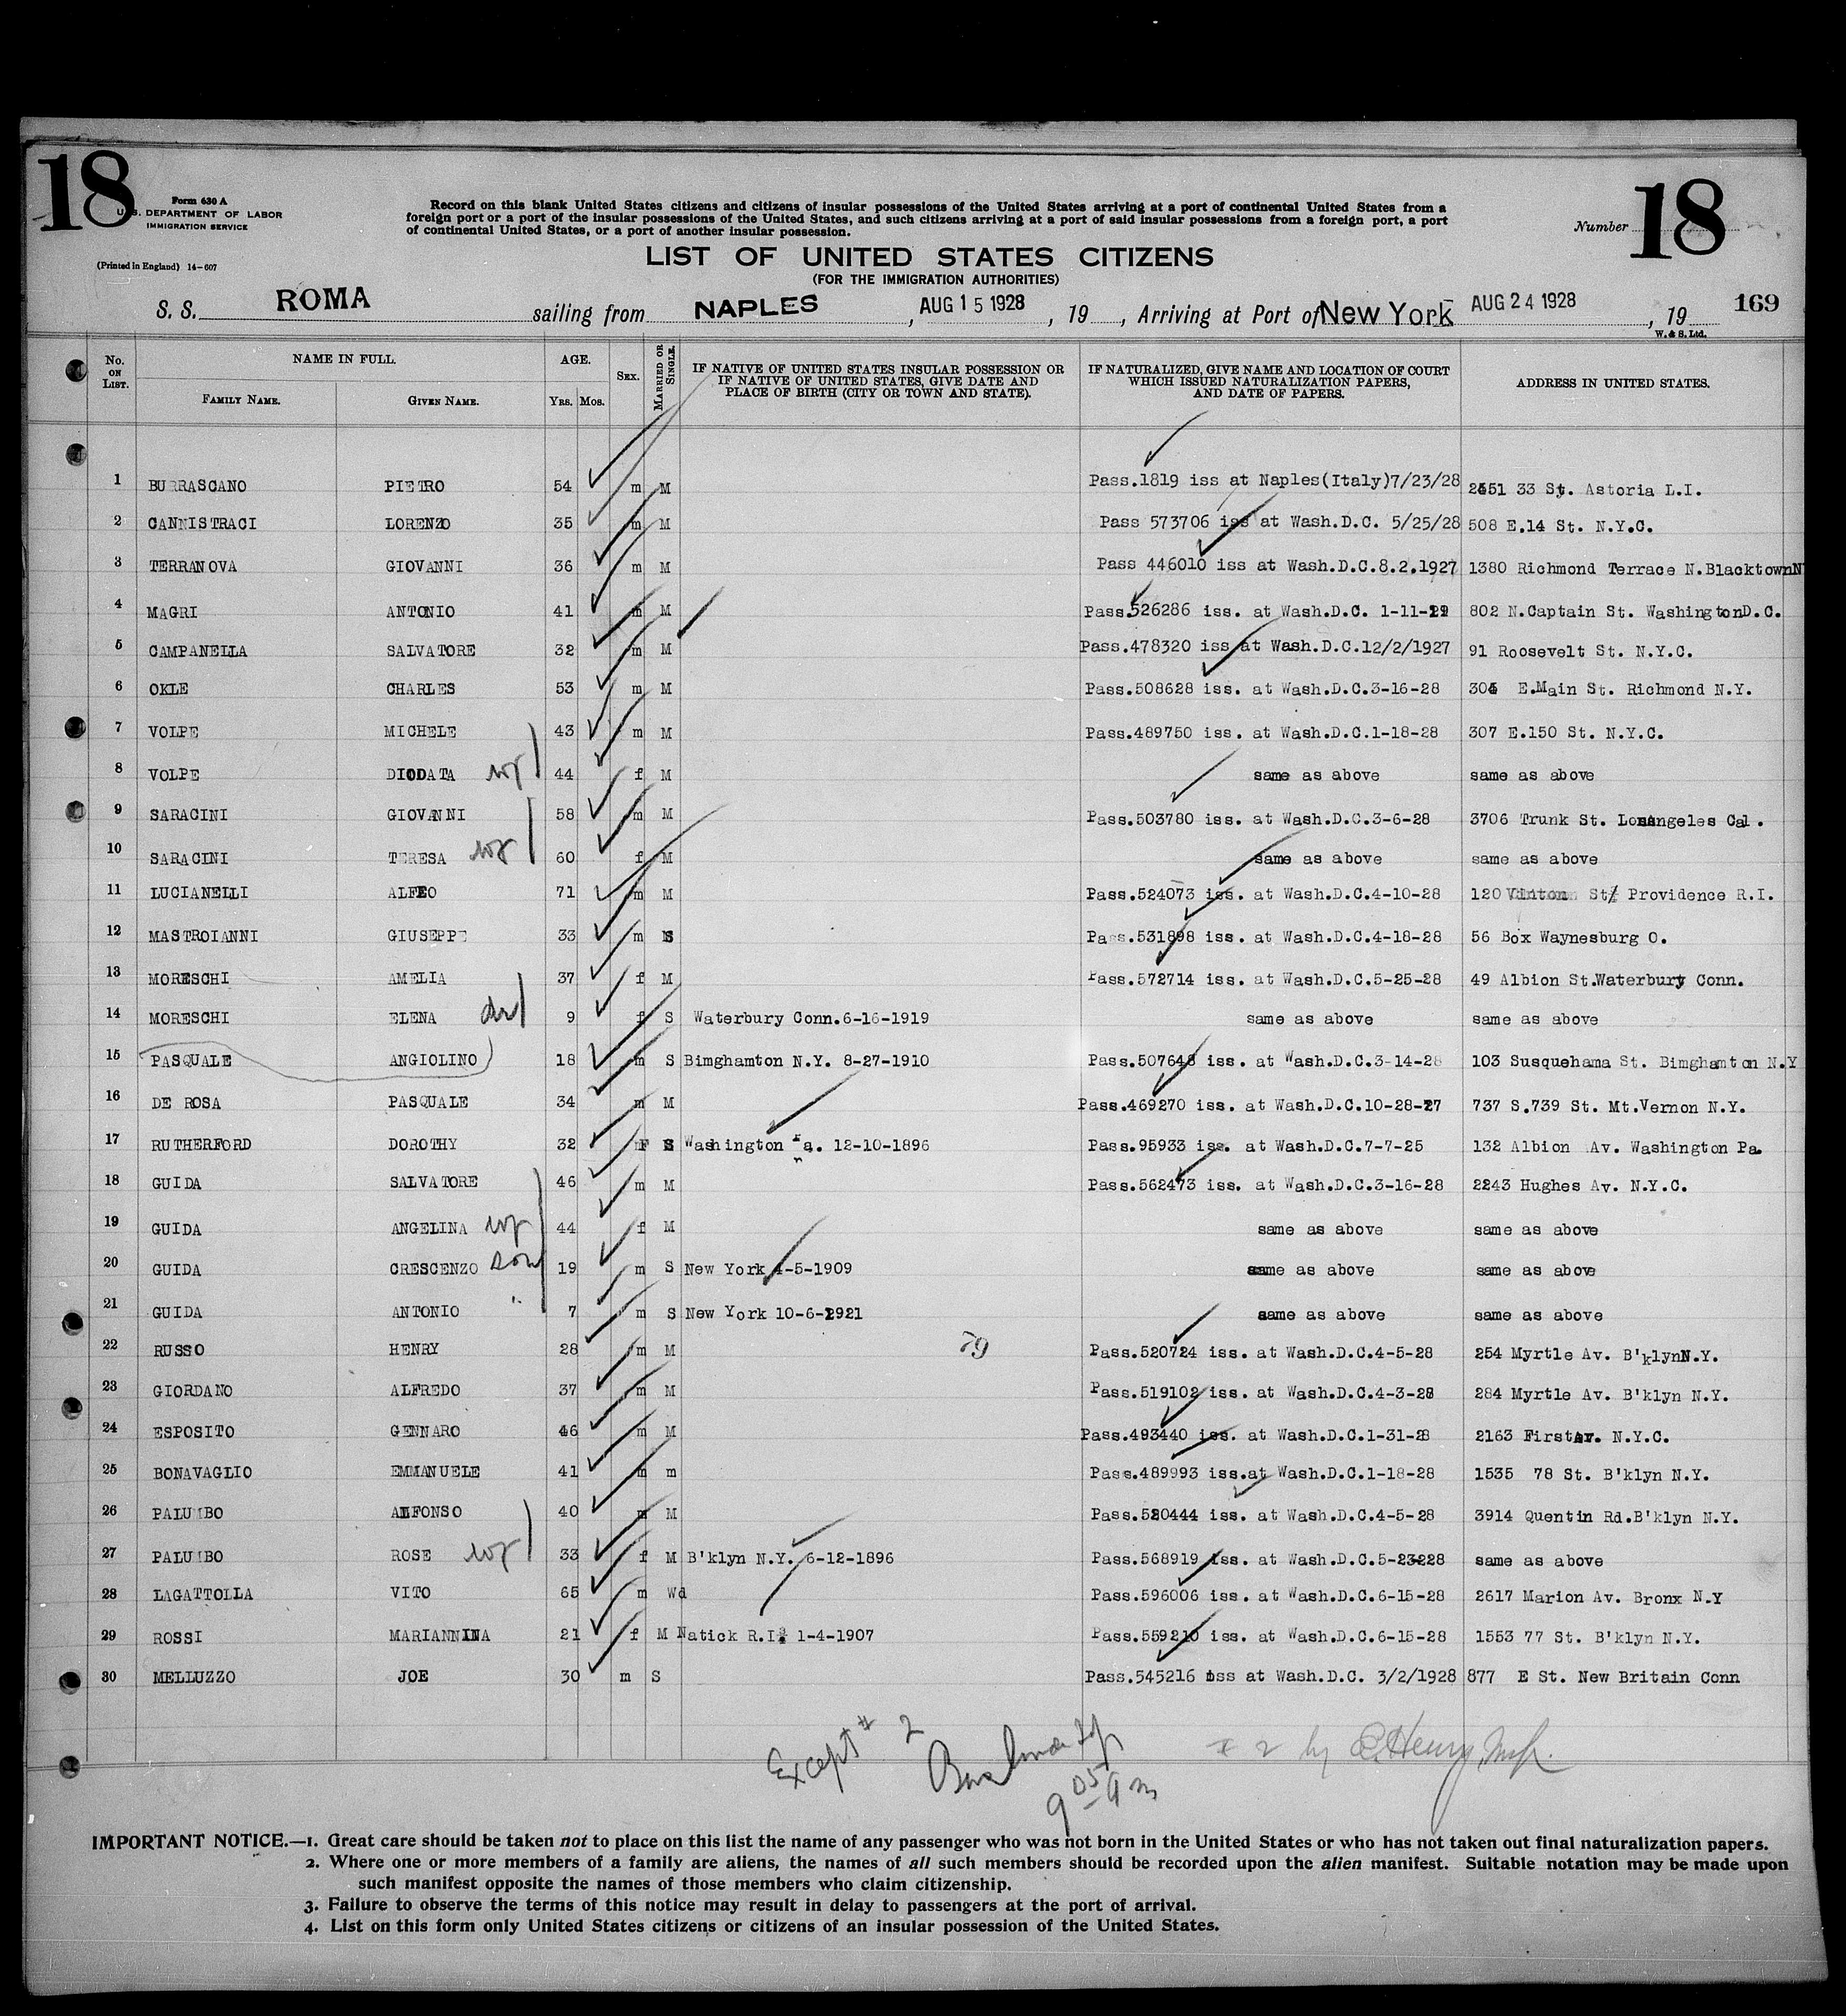 18
Form 630 A
U.S. DEPARTMENT OF LABOR
IMMIGRATION SERVICE
(Printed in England) 14-607
Record on this blank United States citizens and citizens of insular possessions of the United States arriving at a port of continental United States from a
foreign port or a port of the insular possessions of the United States, and such citizens arriving at a port of said insular possessions from a foreign port, a port
of continental United States, or a port of another insular possession.
Number 18
LIST OF UNITED STATES CITIZENS
(FOR THE IMMIGRATION AUTHORITIES)
S. S. ROMA sailing from NAPLES, AUG 15 1928, 19 , Arriving at Port of New York AUG 24 1928, 19 169
W. & S. Ltd.
No. ON LIST. NAME IN FULL. FAMILY NAME. GIVEN NAME. AGE. YRS. MOS. SEX. MARRIED OR SINGLE. IF NATIVE OF UNITED STATES INSULAR POSSESSION OR IF NATIVE OF UNITED STATES, GIVE DATE AND PLACE OF BIRTH (CITY OR TOWN AND STATE). IF NATURALIZED, GIVE NAME AND LOCATION OF COURT WHICH ISSUED NATURALIZATION PAPERS, AND DATE OF PAPERS. ADDRESS IN UNITED STATES.
1 BURRASCANO PIETRO 54 m M Pass.1819 iss at Naples(Italy)7/23/28 2451 33 St. Astoria L.I.
2 CANNISTRACI LORENZO 35 m M Pass 573706 iss at Wash.D.C. 5/25/28 508 E.14 St. N.Y.C.
3 TERRANOVA GIOVANNI 36 m M Pass 446010 iss at Wash.D.C.8.2.1927 1380 Richmond Terrace N.BlacktownN
4 MAGRI ANTONIO 41 m M Pass.526286 iss. at Wash.D.C. 1-11- 802 N.Captain St. WashingtonD.C.
5 CAMPANELLA SALVATORE 32 m M Pass.478320 iss at Wash.D.C.12/2/1927 91 Roosevelt St. N.Y.C.
6 OKLE CHARLES 53 m M Pass.508628 iss. at Wash.D.C.3-16-28 304 E.Main St. Richmond N.Y.
7 VOLPE MICHELE 43 m M Pass.489750 iss. at Wash.D.C.1-18-28 307 E.150 St. N.Y.C.
8 VOLPE DIODATA wf 44 f M same as above same as above
9 SARACINI GIOVANNI 58 m M Pass.503780 iss. at Wash.D.C.3-6-28 3706 Trunk St. Losangeles Cal.
10 SARACINI TERESA wf 60 f M same as above same as above
11 LUCIANELLI ALFEO 71 m M Pass.524073 iss. at Wash.D.C.4-10-28 120 St. Providence R.I.
12 MASTROIANNI GIUSEPPE 33 m S Pass.531898 iss. at Wash.D.C.4-18-28 56 Box Waynesburg O.
13 MORESCHI AMELIA 37 f M Pass.572714 iss. at Wash.D.C.5-25-28 49 Albion St.Waterbury Conn.
14 MORESCHI ELENA dr 9 f S Waterbury Conn.6-16-1919 same as above same as above
15 PASQUALE ANGIOLINO 18 m S Bimghamton N.Y. 8-27-1910 Pass.507648 iss. at Wash.D.C.3-14-28 103 Susquehama St. Bimghamton N.Y
16 DE ROSA PASQUALE 34 m M Pass.469270 iss. at Wash.D.C.10-28-27 737 S.739 St. Mt.Vernon N.Y.
17 RUTHERFORD DOROTHY 32 F S Washington Pa. 12-10-1896 Pass.95933 iss. at Wash.D.C.7-7-25 132 Albion Av. Washington Pa.
18 GUIDA SALVATORE 46 m M Pass.562473 iss. at Wash.D.C.3-16-28 2243 Hughes Av. N.Y.C.
19 GUIDA ANGELINA wf 44 f M same as above same as above
20 GUIDA CRESCENZO son 19 m S New York 4-5-1909 same as above same as above
21 GUIDA ANTONIO " 7 m S New York 10-6-1921 same as above same as above
22 RUSSO HENRY 28 m M 79 Pass.520724 iss. at Wash.D.C.4-5-28 254 Myrtle Av. B'klynN.Y.
23 GIORDANO ALFREDO 37 m M Pass.519102 iss. at Wash.D.C.4-3-28 284 Myrtle Av. B'klyn N.Y.
24 ESPOSITO GENNARO 46 m M Pass.493440 iss. at Wash.D.C.1-31-28 2163 FirstAv. N.Y.C.
25 BONAVAGLIO EMMANUELE 41 m m Pass.489993 iss.at Wash.D.C.1-18-28 1535 78 St. B'klyn N.Y.
26 PALUMBO ALFONSO 40 m M Pass.520444 iss. at Wash.D.C.4-5-28 3914 Quentin Rd.B'klyn N.Y.
27 PALUMBO ROSE wf 33 f M B'klyn N.Y. 6-12-1896 Pass.568919 iss. at Wash.D.C.5-23-28 same as above
28 LAGATTOLLA VITO 65 m Wd Pass.596006 iss. at Wash.D.C.6-15-28 2617 Marion Av. Bronx N.Y
29 ROSSI MARIANNINA 21 f M Natick R.I. 1-4-1907 Pass.559210 iss. at Wash.D.C.6-15-28 1553 77 St. B'klyn N.Y.
30 MELLUZZO JOE 30 m S Pass.545216 iss at Wash.D.C. 3/2/1928 877 E St. New Britain Conn
Except # 2
9 05 am
# 2 by C. Henry Insp.
IMPORTANT NOTICE.—1. Great care should be taken not to place on this list the name of any passenger who was not born in the United States or who has not taken out final naturalization papers.
2. Where one or more members of a family are aliens, the names of all such members should be recorded upon the alien manifest. Suitable notation may be made upon
such manifest opposite the names of those members who claim citizenship.
3. Failure to observe the terms of this notice may result in delay to passengers at the port of arrival.
4. List on this form only United States citizens or citizens of an insular possession of the United States.